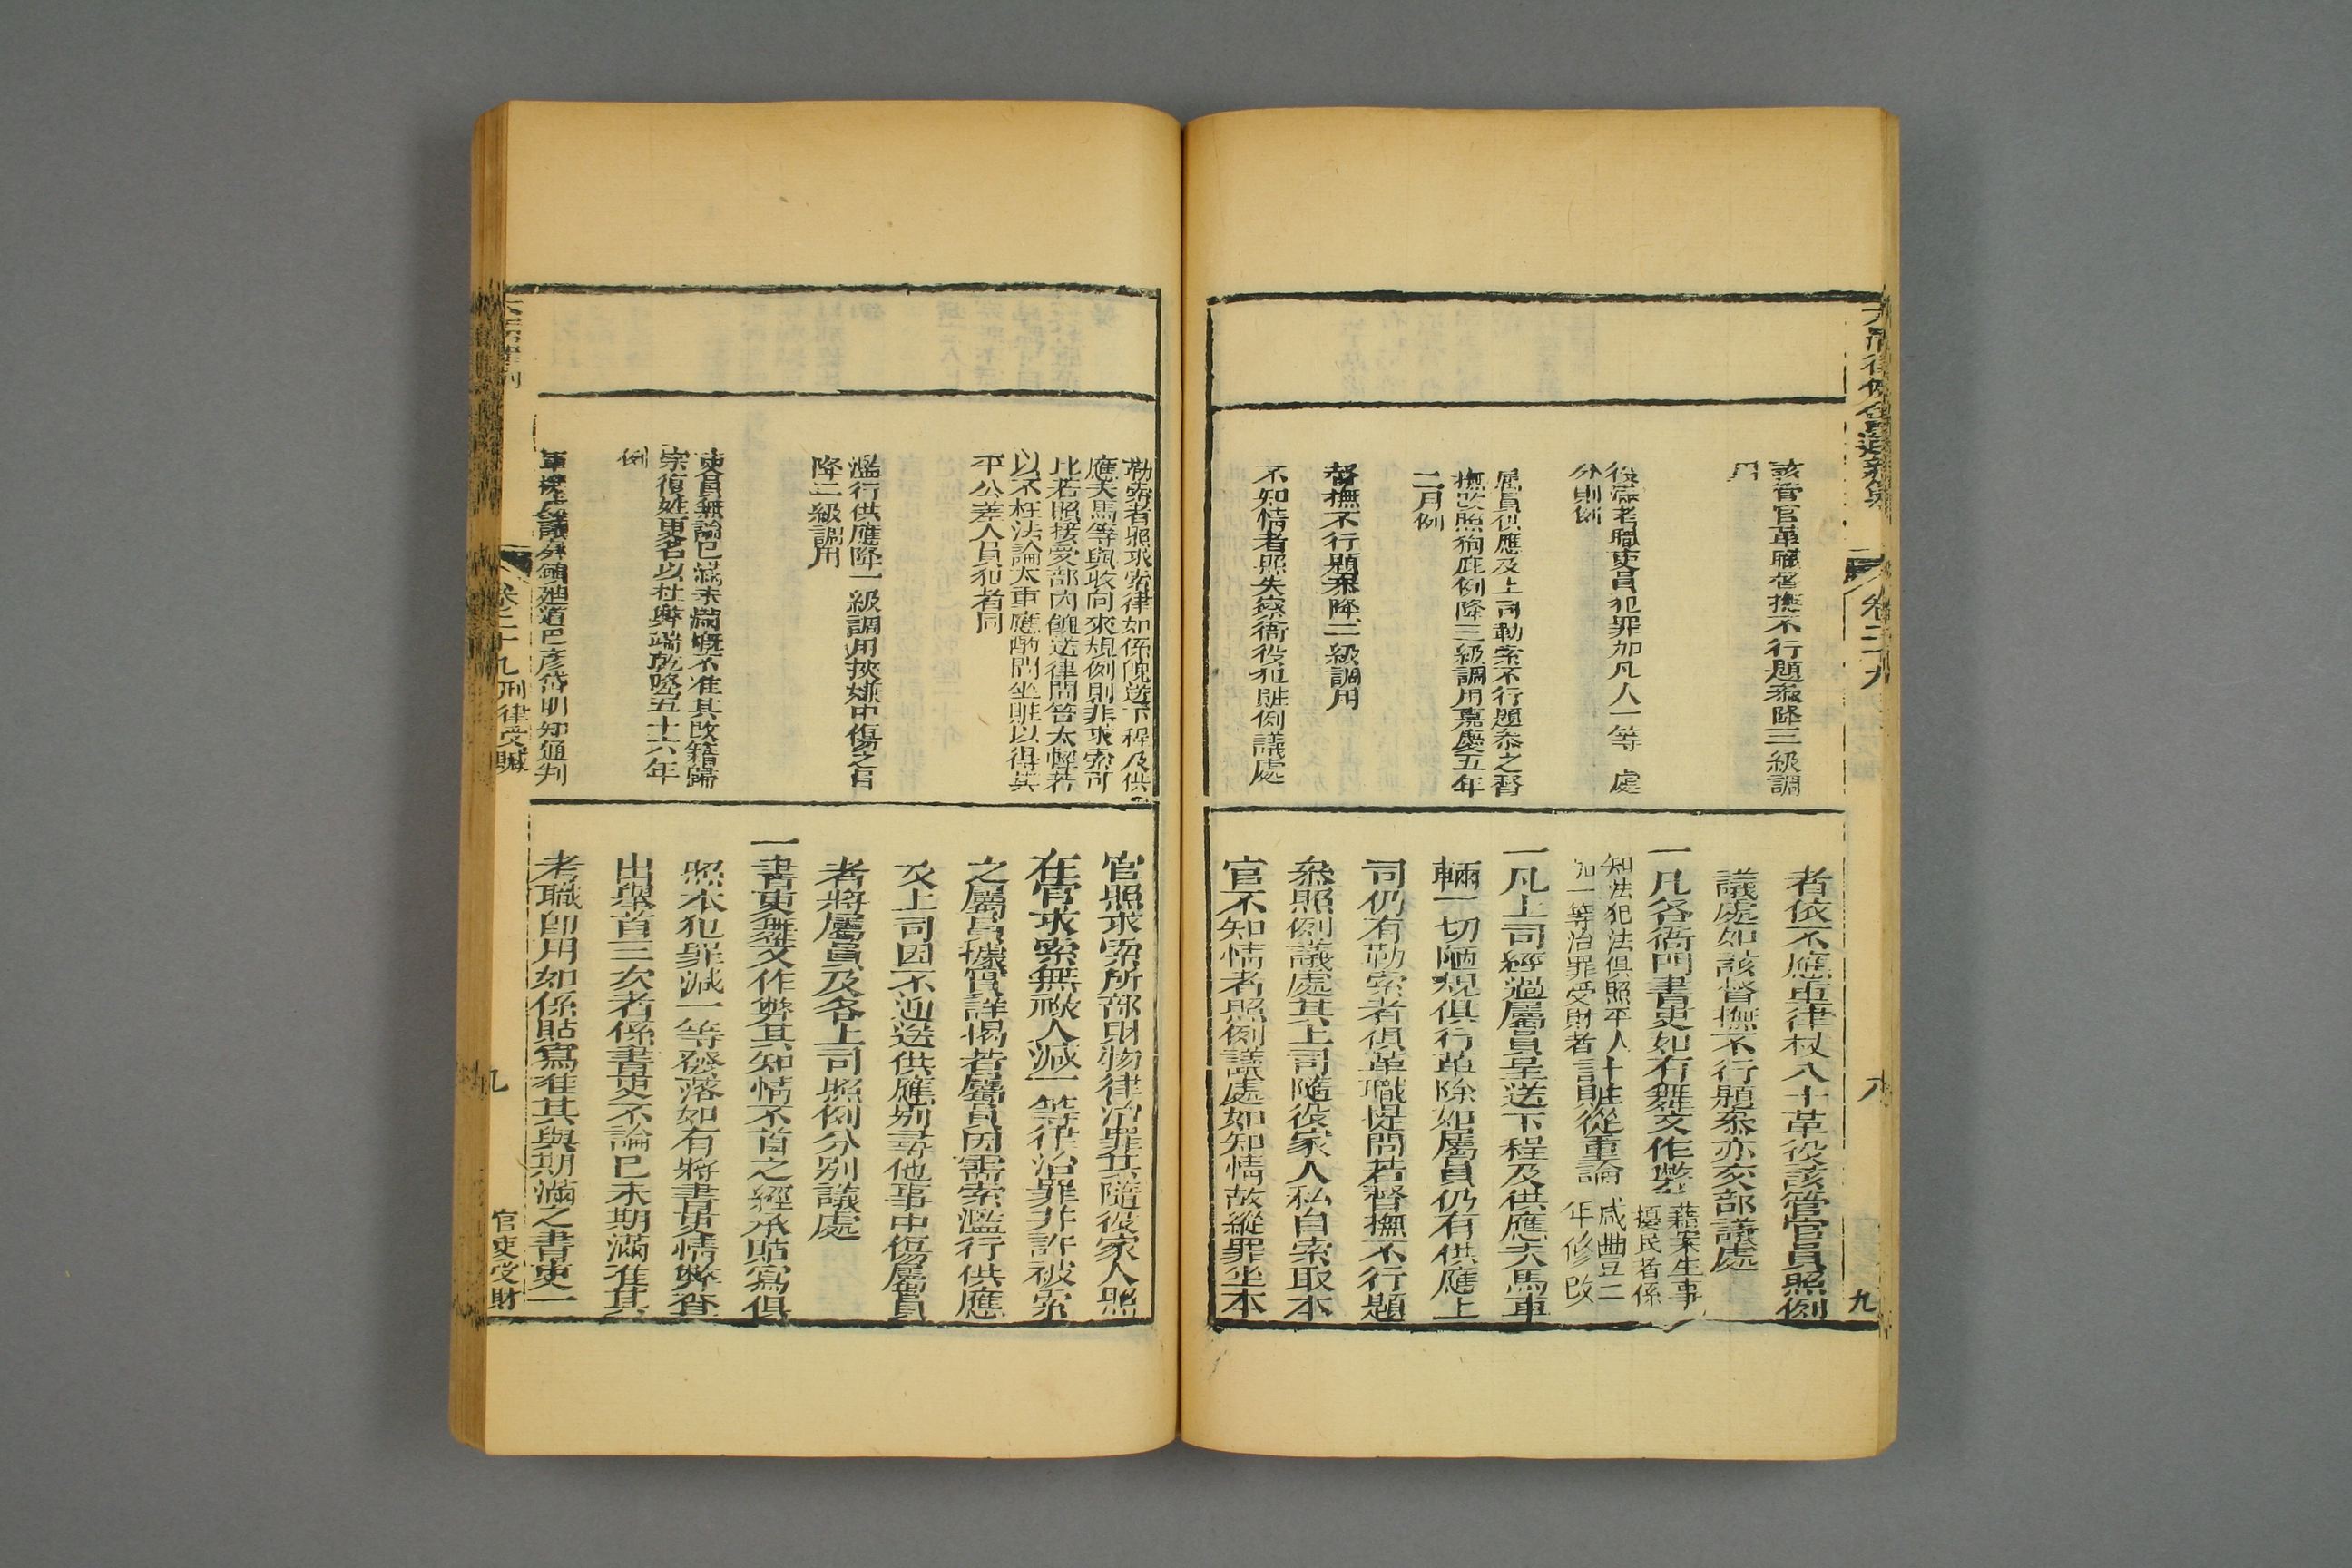 大清律例會通新纂
卷二十九
該管官革職督撫不行題參降三級調
用
役滿考職吏員犯罪加凡人一等 處
分則例
屬員供應及上司勒索不行題參之督
撫以照狥庇例降三級調用嘉慶五年
二月例
督撫不行題參降三級調用
不知情者照失察衙役犯贓例議處
者依不應重律杖八十革役該管官員照例
議處如該督撫不行題參亦交部議處
一凡各衙門書吏如有舞文作弊 藉案生事
擾民者係
知法犯法俱照平人
加一等治罪受財者計贓從重論 咸豐二
年修改
一凡上司經過屬員呈送下程及供應夫馬車
輛一切陋規俱行革除如屬員仍有供應上
司仍有勒索者俱革職提問若督撫不行題
參照例議處其上司隨役家人私自索取本
官不知情者照例議處如知情故縱罪坐本
勒索者照求索律如係餽送下程及供
應夫馬等與收向來規例則非求索可
比若照接受部內餽送律問笞太輕若
以不枉法論太重應酌問坐贓以得其
平公差人員犯者同
濫行供應降一級調用挾嫌中傷之官
降二級調用
吏員無論已滿未滿概不准其改籍歸
宗復姓更名以杜弊端乾隆五十六年
例
官照求索所部財物律治罪其隨役家人照
在官求索無祿人減一等律治罪并許被索
之屬員據實詳揭若屬員因需索濫行供應
及上司因不迎送供應别尋他事中傷屬員
者將屬員及各上司照例分别議處
一書吏舞文作弊其知情不首之經承貼寫俱
照本犯罪減一等發落如有將書吏情弊查
出舉首三次者係書吏不論已未期滿准其
考職即用如係貼寫准其與期滿之書吏一
卷二十九 刑律受贓
九
官吏受財